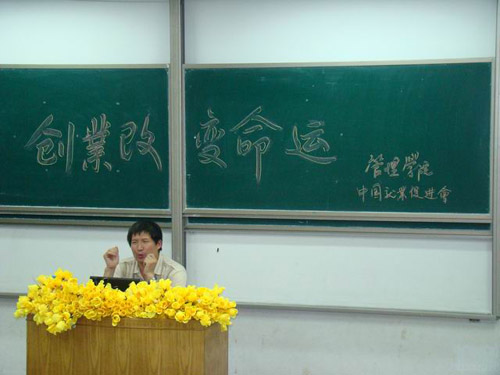 创業改变命运
管理學院
中国就業促进會